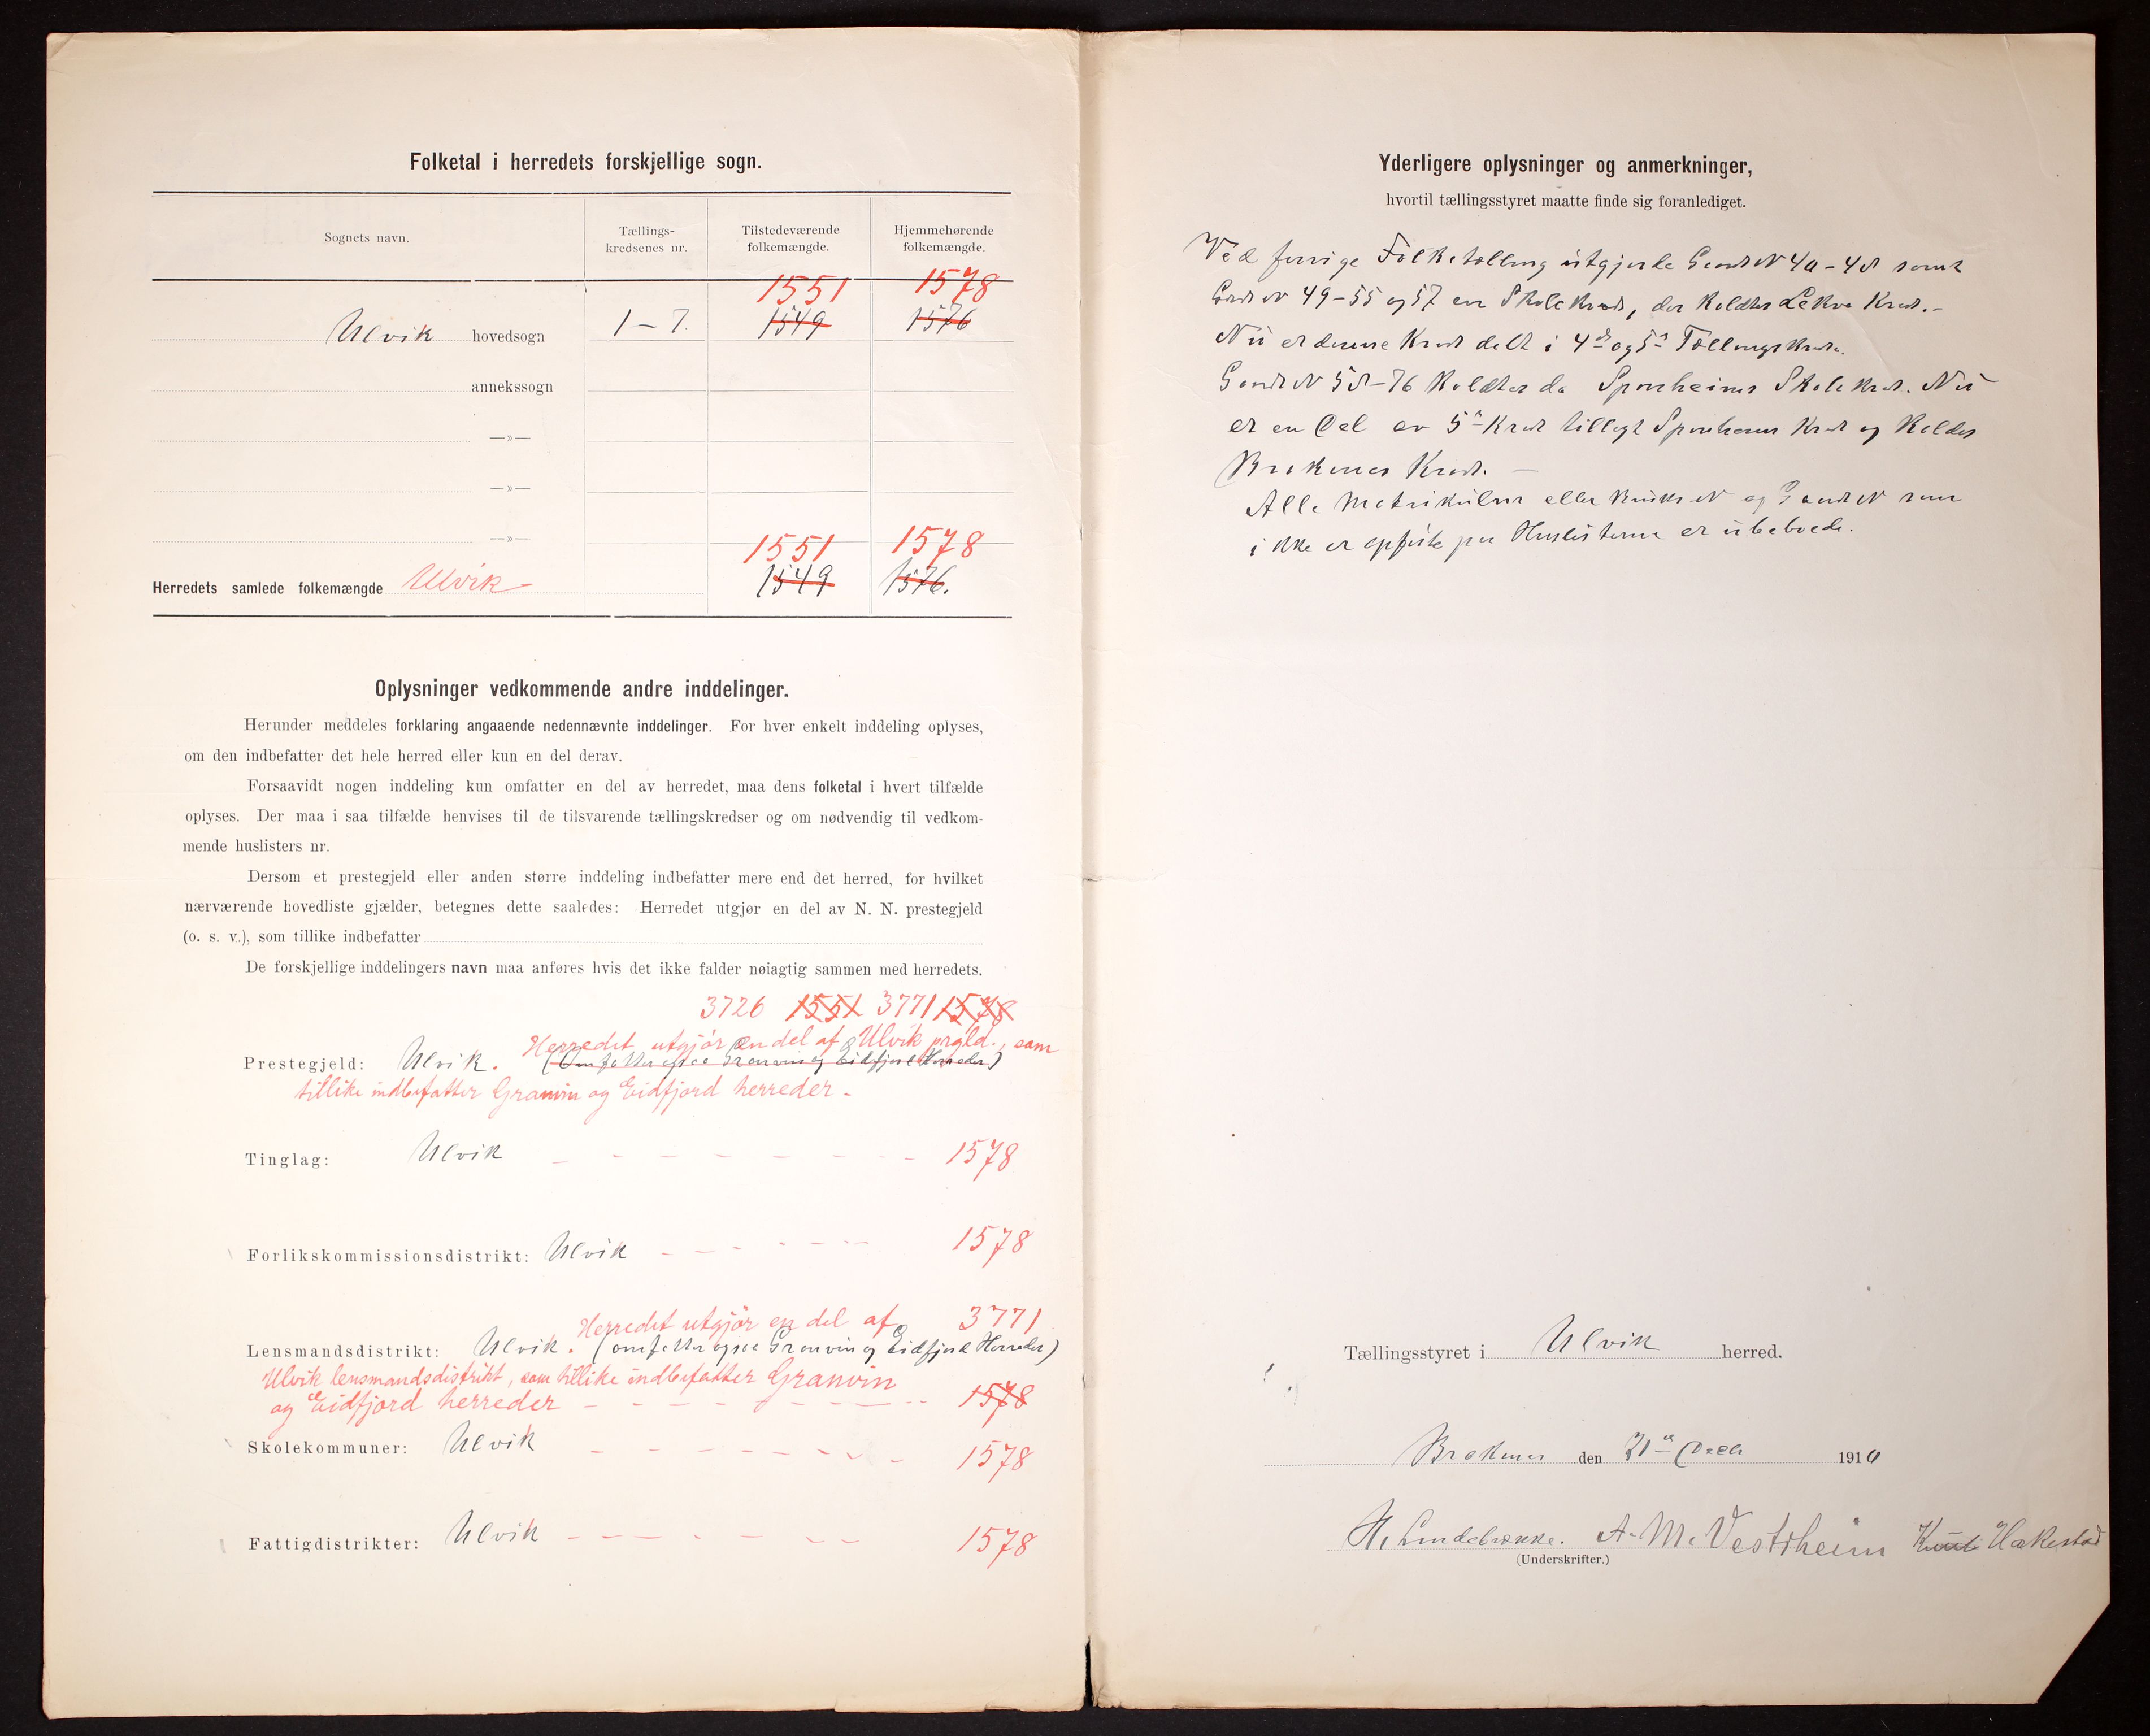 Folketal i herredets forskjellige sogn.
Sognets navn.
Tællings-
kredsenes nr.
Tilstedeværende
folkemængde.
Hjemmehørende
folkemængde.
1551 1578
Ulvik hovedsogn 1 – 7. 1549 1576
annekssogn
—»—
—»—
—»—
1551 1578
Herredets samlede folkemængde Ulvik 1549 1576.
Oplysninger vedkommende andre inddelinger.
Herunder meddeles forklaring angaaende nedennævnte inddelinger. For hver enkelt inddeling oplyses,
om den indbefatter det hele herred eller kun en del derav.
Forsaavidt nogen inddeling kun omfatter en del av herredet, maa dens folketal i hvert tilfælde
oplyses. Der maa i saa tilfælde henvises til de tilsvarende tællingskredser og om nødvendig til vedkom-
mende huslisters nr.
Dersom et prestegjeld eller anden større inddeling indbefatter mere end det herred, for hvilket
nærværende hovedliste gjælder, betegnes dette saaledes: Herredet utgjør en del av N. N. prestegjeld
(o. s. v.), som tillike indbefatter
De forskjellige inddelingers navn maa anføres hvis det ikke falder nøiagtig sammen med herredets.
3726 1551 3771 1578
Herredet utgjør en del af Ulvik prgld., som
Prestegjeld: Ulvik. (Omfatter ogsaa Granvin og Eidfjord Herreder)
tillike indbefatter Granvin og Eidfjord herreder -
Tinglag: Ulvik 1578
Forlikskommissionsdistrikt: Ulvik 1578
Herredet utgjør en del af 3771
Lensmandsdistrikt: Ulvik. (omfatter ogsaa Granvin og Eidfjord Herreder)
Ulvik lensmandsdistrikt, som tillike indbefatter Granvin
og Eidfjord herreder 1578
Skolekommuner: Ulvik 1578
Fattigdistrikter: Ulvik 1578
Yderligere oplysninger og anmerkninger,
hvortil tællingsstyret maatte finde sig foranlediget.
Ved forrige Folketælling utgjorde Gards N 40 – 48 samt
Gards N 49 – 55 og 57 en Skolekreds, der kaldtes Lekve Kreds. -
Nu er denne Kreds delt i 4de og 5te Tællingskreds.
Gards N 58 – 76 kaldtes da Sponheims Skolekreds. Nu
er en Del av 5te Kreds tillagt Sponheims Kreds og kaldes
Brakenes Kreds. —
Alle Matrikulnr eller Bruks N og Gards N som
ikke er opførte paa Huslisterne er ubeboede.
Tællingsstyret i Ulvik herred.
Brakenes den 21de 1910
H. Lindebrække. A. M. Vestrheim Knut Hakestad
(Underskrifter.)